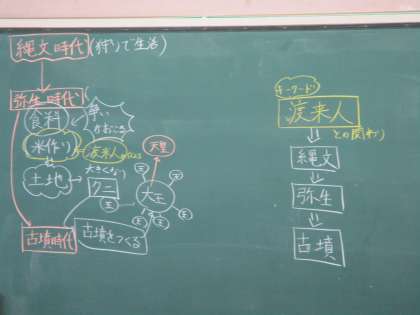 縄文時代(狩りで生活)
弥生時代
食料
争いがおこる
米作り
渡来人
土地
大きくなう
クニ
王
大王
天皇
王
王
王
王
王
王
古墳時代
古墳をつくる
キーワード
渡来人
との関わり
縄文
弥生
古墳